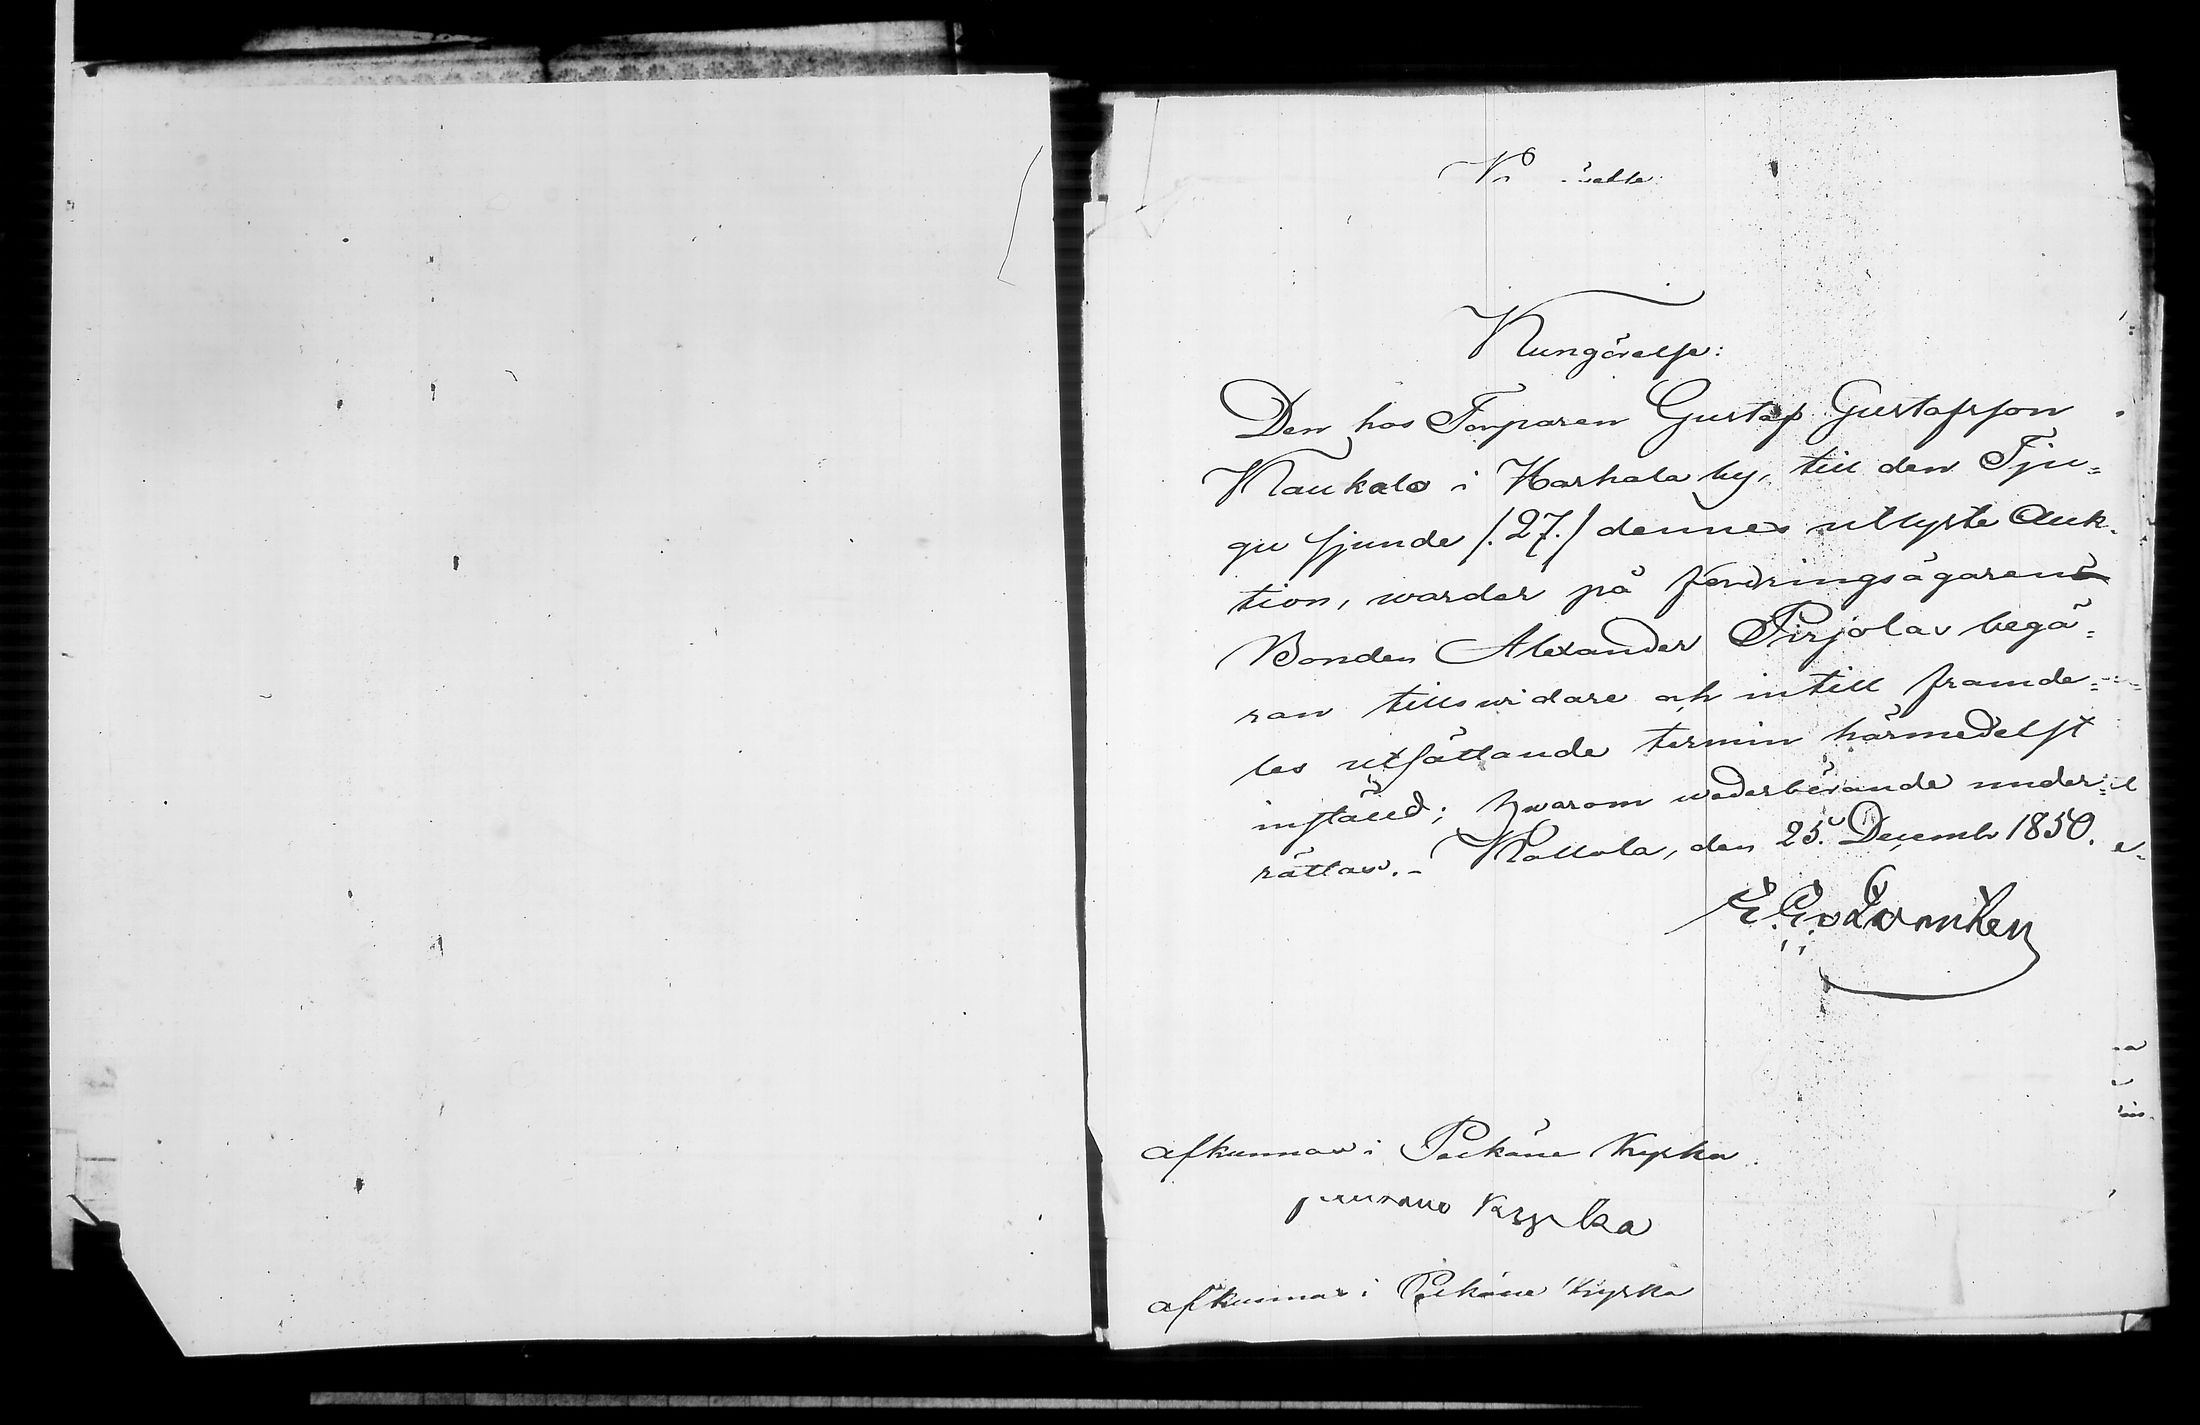 Kungörelse:
Den hos Torparen Gustaf Gustafsson
Kaukalo i Harhala by, till den Tju=
gu sjunde /:27:/ dennes utlyste Auk-
tion, warder på fordringsägaren
Bonden Alexander Pirjolas begä=
ran tillswidare och intill framde=
les utsättande termin härmedelst
inställd; hwarom wederbörande under=
rättas.- Kollola, den 25. Decemb 1850.
afkunnas i Pelkäne Kyrka
Kyrka
afkunnas i Pelkäne Kyrka